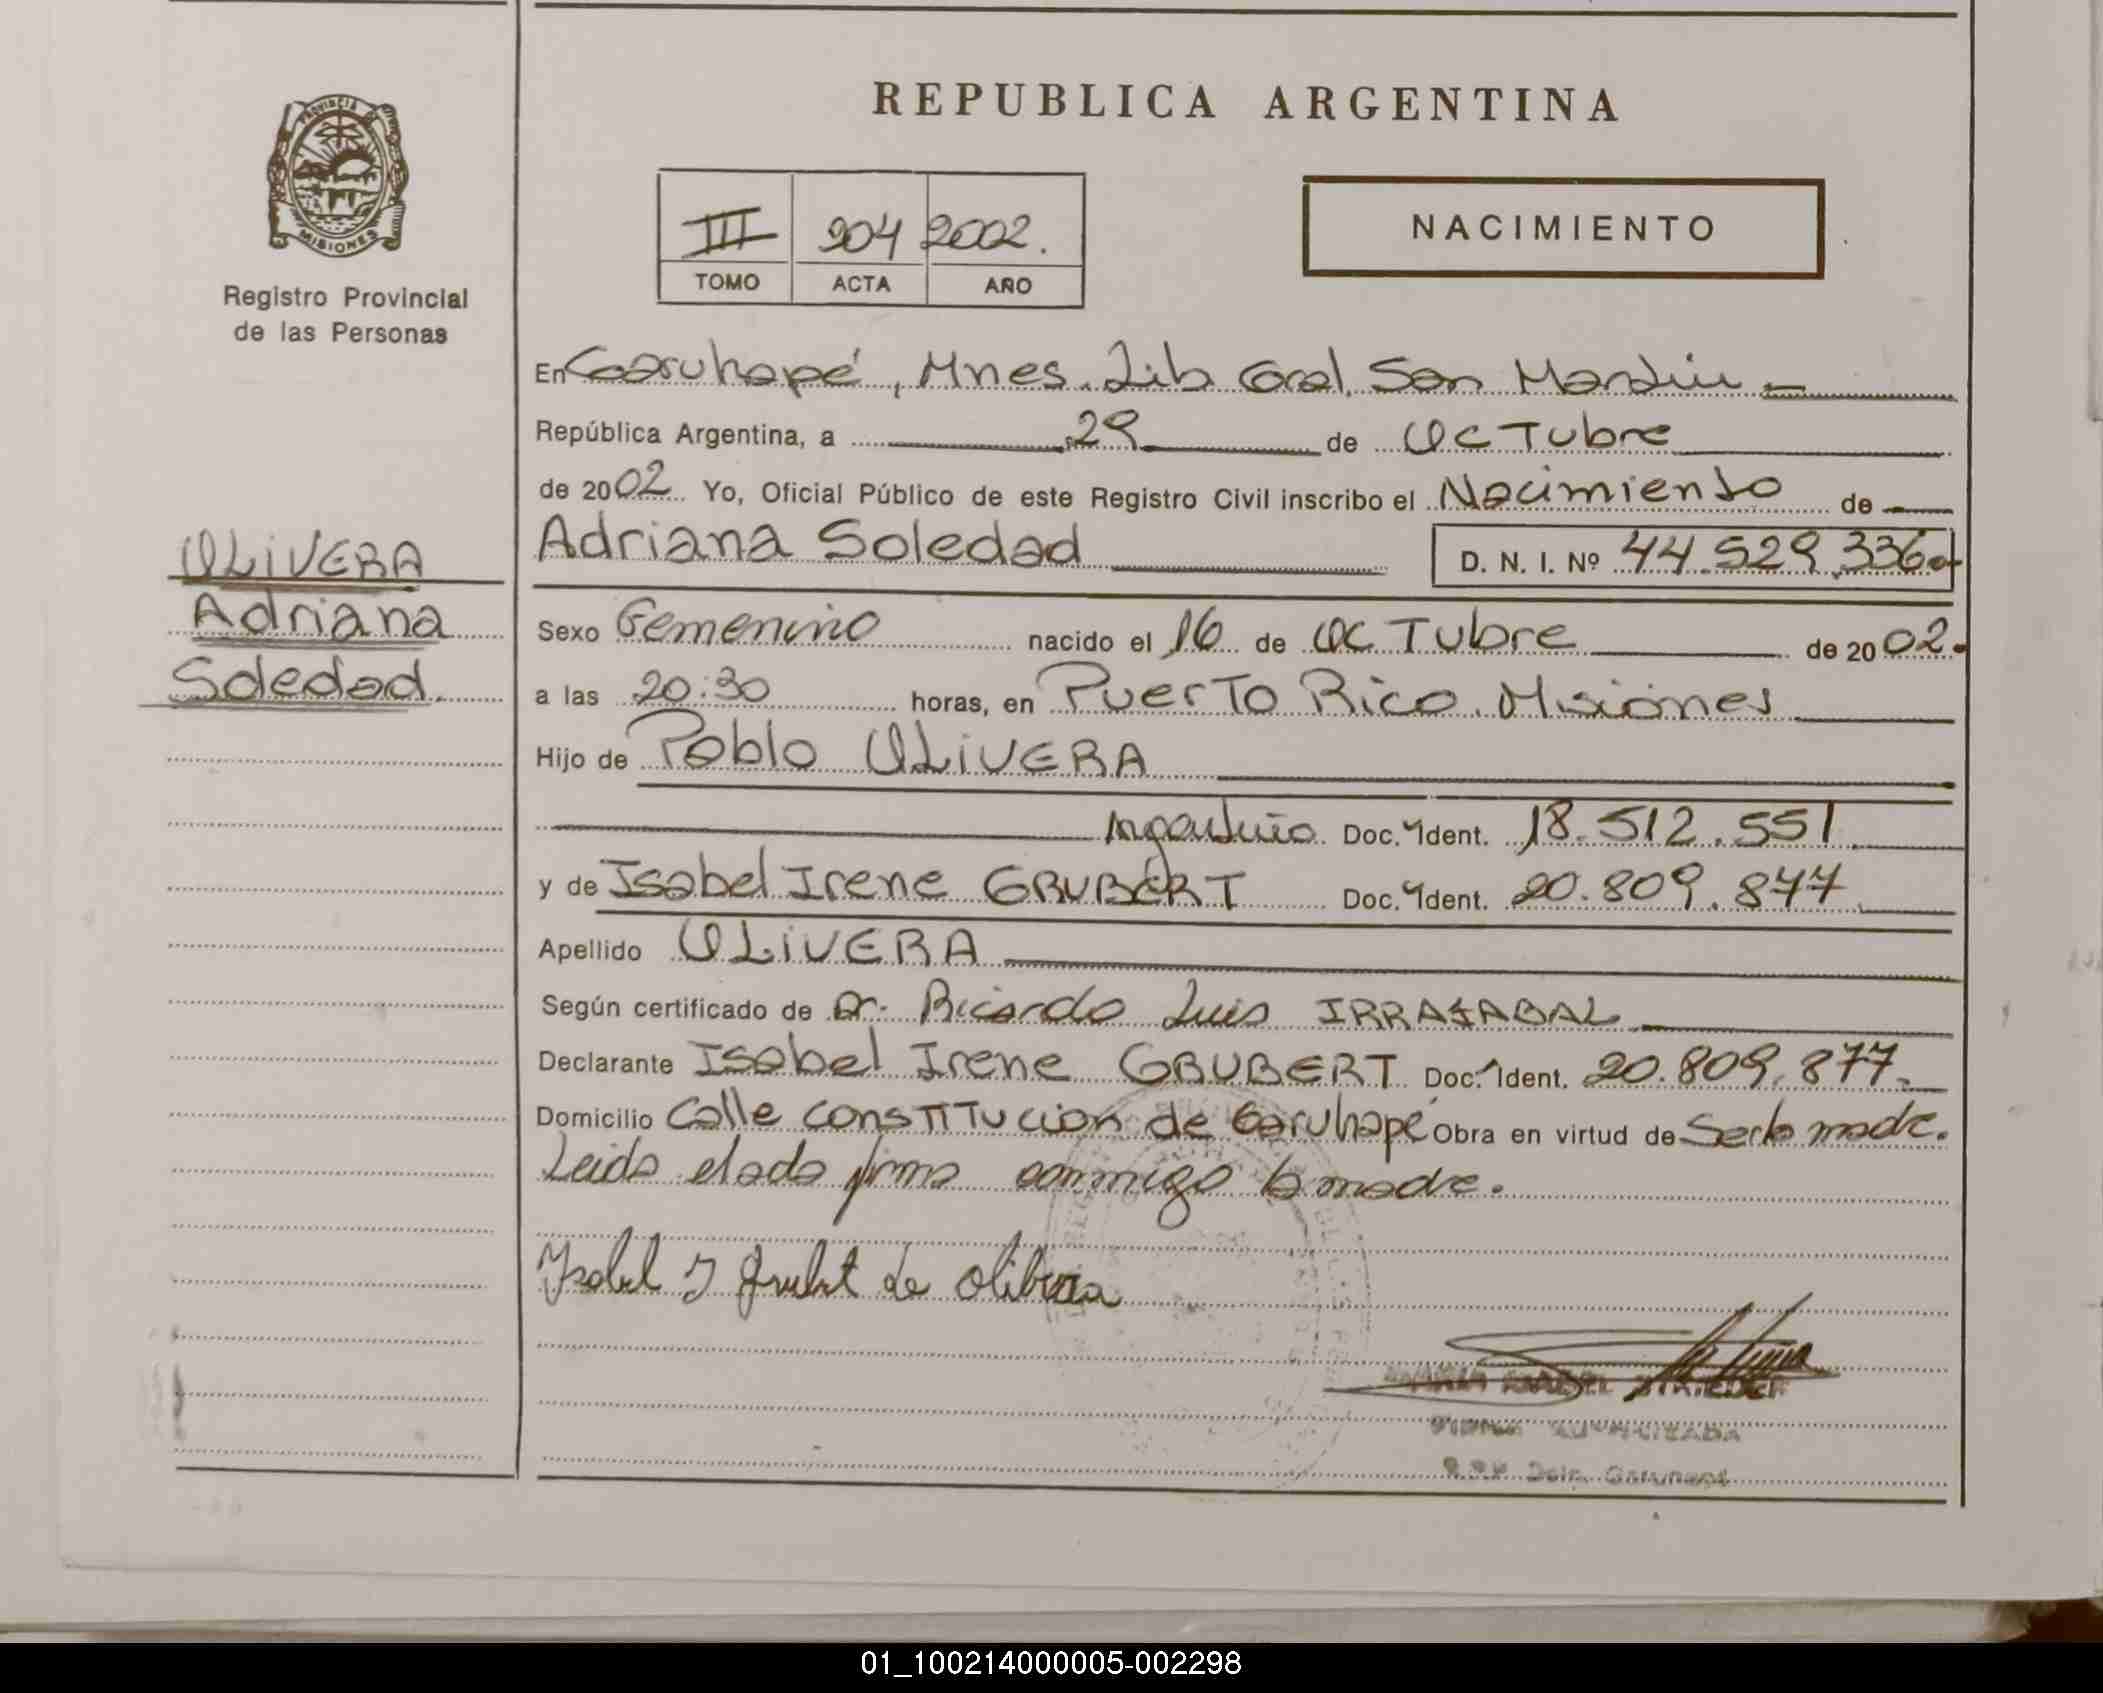 REPUBLICA ARGENTINA
PROVINCIA DE
MISIONES
Registro Provincial
de las Personas
III 204 2002.
TOMO ACTA AÑO
NACIMIENTO
En Garuhapé, Mnes. Lib Gral. San Martín
República Argentina, a 29 de Octubre
de 2002 Yo, Oficial Público de este Registro Civil inscribo el Nacimiento de
Adriana Soledad D. N. I. Nº 44.529.336
OLIVERA
Adriana
Soledad
Sexo Femenino nacido el 16 de Octubre de 2002.
a las 20:30 horas, en Puerto Rico. Misiones
Hijo de Pablo OLIVERA
Argentino Doc. Ident. 18.512.551
y de Isabel Irene GRUBERT Doc. Ident. 20.809.877
Apellido OLIVERA
Según certificado de Dr. Ricardo Luis IRRAZABAL
Declarante Isabel Irene GRUBERT Doc. Ident. 20.809.877.
Domicilio Calle Constitucion de Garuhapé Obra en virtud de Ser la madre.
Leida el acta firma conmigo la madre.
Isabel I Grubert de Olibera
FIRMA AUTORIZADA
R.P.P. Deleg. Garuhapé
01_100214000005-002298